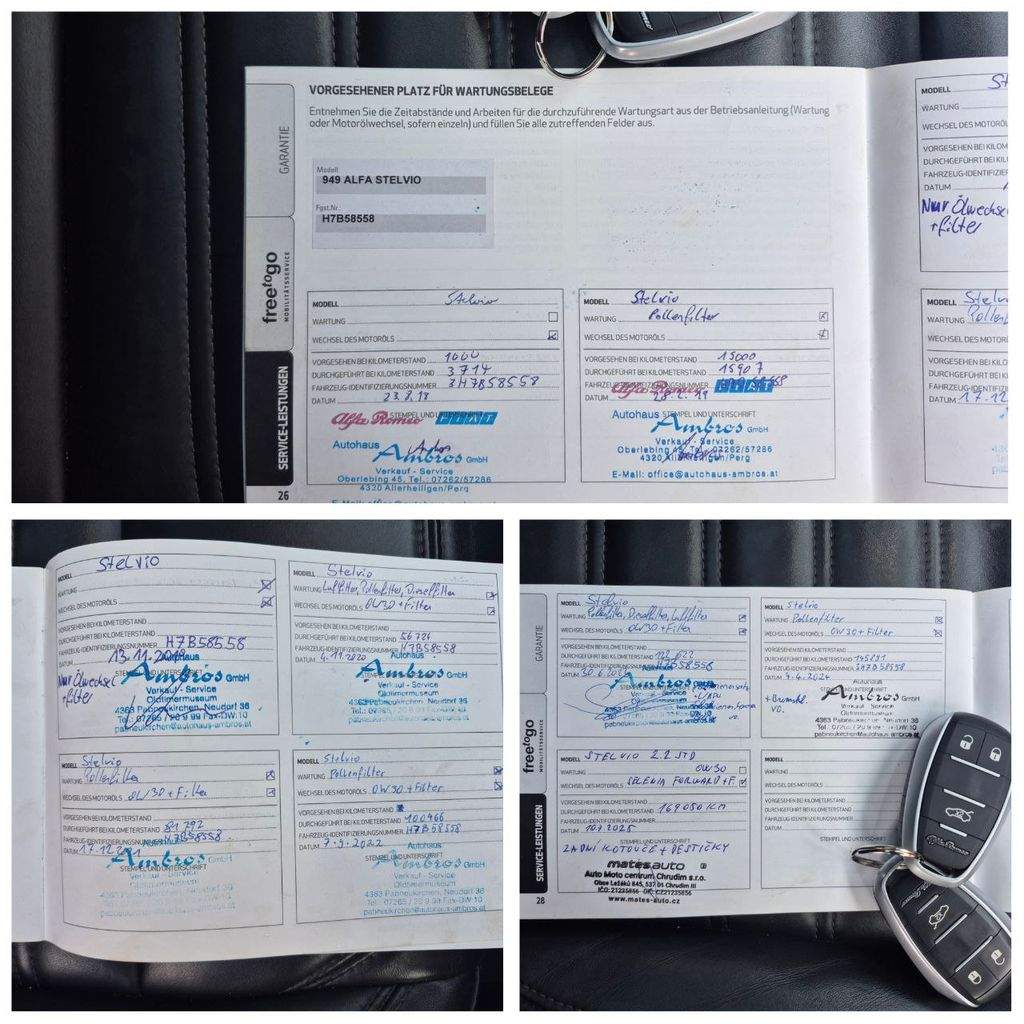 VORGESEHENER PLATZ FÜR WARTUNGSBELEGE
Entnehmen Sie die Zeitabstände und Arbeiten für die durchzuführende Wartungsart aus der Betriebsanleitung (Wartung
oder Motorölwechsel, sofern einzeln) und füllen Sie alle zutreffenden Felder aus.
GARANTIE
freetogo
MOBILITÄTSSERVICE
SERVICE-LEISTUNGEN
26
Modell:
949 ALFA STELVIO
Fgst.Nr.:
H7B58558
MODELL Stelvio
WARTUNG
WECHSEL DES MOTORÖLS
VORGESEHEN BEI KILOMETERSTAND 1000
DURCHGEFÜHRT BEI KILOMETERSTAND 3714
FAHRZEUG-IDENTIFIZIERUNGSNUMMER H7B58558
DATUM 23.8.18
STEMPEL UND UNTERSCHRIFT
Alfa Romeo FIAT
Autohaus
Ambros GmbH
Verkauf - Service
Oberlebing 45, Tel.: 07262/57286
4320 Allerheiligen/Perg
MODELL Stelvio
WARTUNG Pollenfilter
WECHSEL DES MOTORÖLS
VORGESEHEN BEI KILOMETERSTAND 15000
DURCHGEFÜHRT BEI KILOMETERSTAND 15907
FAHRZEUG-IDENTIFIZIERUNGSNUMMER
DATUM
Alfa Romeo FIAT
STEMPEL UND UNTERSCHRIFT
Autohaus
Ambros GmbH
Verkauf - Service
Oberlebing 45, Tel. 07262/57286
4320 Allerheiligen/Perg
E-Mail: office@autohaus-ambros.at
MODELL St
WARTUNG
WECHSEL DES MOTORÖL
VORGESEHEN BEI KILOM
DURCHGEFÜHRT BEI KIL
FAHRZEUG-IDENTIFIZIE
DATUM
Nur Ölwechse
+filter
MODELL Stelv
WARTUNG Pollenf
WECHSEL DES MOTORÖL
VORGESEHEN BEI KILOM
DURCHGEFÜHRT BEI KIL
FAHRZEUG-IDENTIFIZIE
DATUM 17.12
MODELL Stelvio
WARTUNG
WECHSEL DES MOTORÖLS
VORGESEHEN BEI KILOMETERSTAND
DURCHGEFÜHRT BEI KILOMETERSTAND
FAHRZEUG-IDENTIFIZIERUNGSNUMMER H7B58558
DATUM
Nur Ölwechsel
+filter
Autohaus
Ambros GmbH
Verkauf - Service
Oldtimermuseum
4363 Pabneukirchen, Neudorf 36
pabneukirchen@autohaus-ambros.at
MODELL Stelvio
WARTUNG Luftfilter, Pollenfilter, Dieselfilter
WECHSEL DES MOTORÖLS 0W30+Filter
VORGESEHEN BEI KILOMETERSTAND
DURCHGEFÜHRT BEI KILOMETERSTAND 56724
FAHRZEUG-IDENTIFIZIERUNGSNUMMER H7B58558
DATUM 4.11.2020
Autohaus
Ambros GmbH
Verkauf - Service
Oldtimermuseum
4363 Pabneukirchen, Neudorf 36
pabneukirchen@autohaus-ambros.at
MODELL Stelvio
WARTUNG Pollenfilter
WECHSEL DES MOTORÖLS 0W30+Filter
VORGESEHEN BEI KILOMETERSTAND
DURCHGEFÜHRT BEI KILOMETERSTAND 81292
FAHRZEUG-IDENTIFIZIERUNGSNUMMER H7B58558
DATUM
Ambros GmbH
Verkauf - Service
Oldtimermuseum
4363 Pabneukirchen, Neudorf 36
pabneukirchen@autohaus-ambros.at
MODELL Stelvio
WARTUNG Pollenfilter
WECHSEL DES MOTORÖLS 0W30+Filter
VORGESEHEN BEI KILOMETERSTAND
DURCHGEFÜHRT BEI KILOMETERSTAND 100466
FAHRZEUG-IDENTIFIZIERUNGSNUMMER H7B58558
DATUM 7.9.2022
Autohaus
Ambros GmbH
Verkauf - Service
Oldtimermuseum
4363 Pabneukirchen, Neudorf 36
pabneukirchen@autohaus-ambros.at
GARANTIE
freetogo
MOBILITÄTSSERVICE
SERVICE-LEISTUNGEN
28
MODELL Stelvio
WARTUNG Pollenfilter, Dieselfilter, Luftfilter
WECHSEL DES MOTORÖLS 0W30+Filter
VORGESEHEN BEI KILOMETERSTAND
DURCHGEFÜHRT BEI KILOMETERSTAND
FAHRZEUG-IDENTIFIZIERUNGSNUMMER H7B58558
DATUM
Ambros
Verkauf - Service
Oldtimermuseum
4363 Pabneukirchen, Neudorf 36
pabneukirchen@autohaus-ambros.at
MODELL Stelvio
WARTUNG Pollenfilter
WECHSEL DES MOTORÖLS 0W30+Filter
VORGESEHEN BEI KILOMETERSTAND
DURCHGEFÜHRT BEI KILOMETERSTAND
FAHRZEUG-IDENTIFIZIERUNGSNUMMER H7B58558
DATUM 9.4.2024
Ambros GmbH
Verkauf - Service
Oldtimermuseum
4363 Pabneukirchen, Neudorf 36
pabneukirchen@autohaus-ambros.at
MODELL STELVIO 2.2 JTD
WARTUNG 0W30
WECHSEL DES MOTORÖLS SELENIA FORWARD+F.
VORGESEHEN BEI KILOMETERSTAND
DURCHGEFÜHRT BEI KILOMETERSTAND 169080 KM
FAHRZEUG-IDENTIFIZIERUNGSNUMMER
DATUM
ZADNÍ KOTOUČE + DESTIČKY
STEMPEL UND UNTERSCHRIFT
matesauto
Auto Moto centrum Chrudim s.r.o.
Obce Ležáků 845, 537 01 Chrudim III
IČO: 21235856 DIČ: CZ21235856
www.mates-auto.cz
MODELL
WARTUNG
WECHSEL DES MOTORÖLS
VORGESEHEN BEI KILOMETERSTAND
DURCHGEFÜHRT BEI KILOMETERSTAND
FAHRZEUG-IDENTIFIZIERUNGSNUMMER
DATUM
STEMPEL UND UNTERSCHRIFT
Alfa Romeo